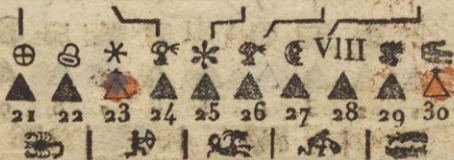 VIII
21 22 23 24 25 26 27 28 29 30